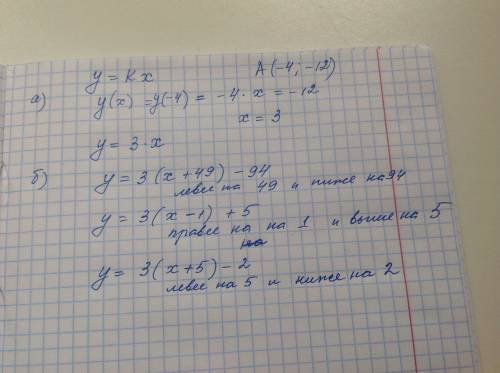 y = Kx A(-4; -12)
a) y(x) = y(-4) = -4 · x = -12
x = 3
y = 3 · x
б) y = 3(x+49) - 94
левее на 49 и ниже на 94
y = 3(x-1) + 5
правее на на 1 и выше на 5
на
y = 3(x+5) - 2
левее на 5 и ниже на 2